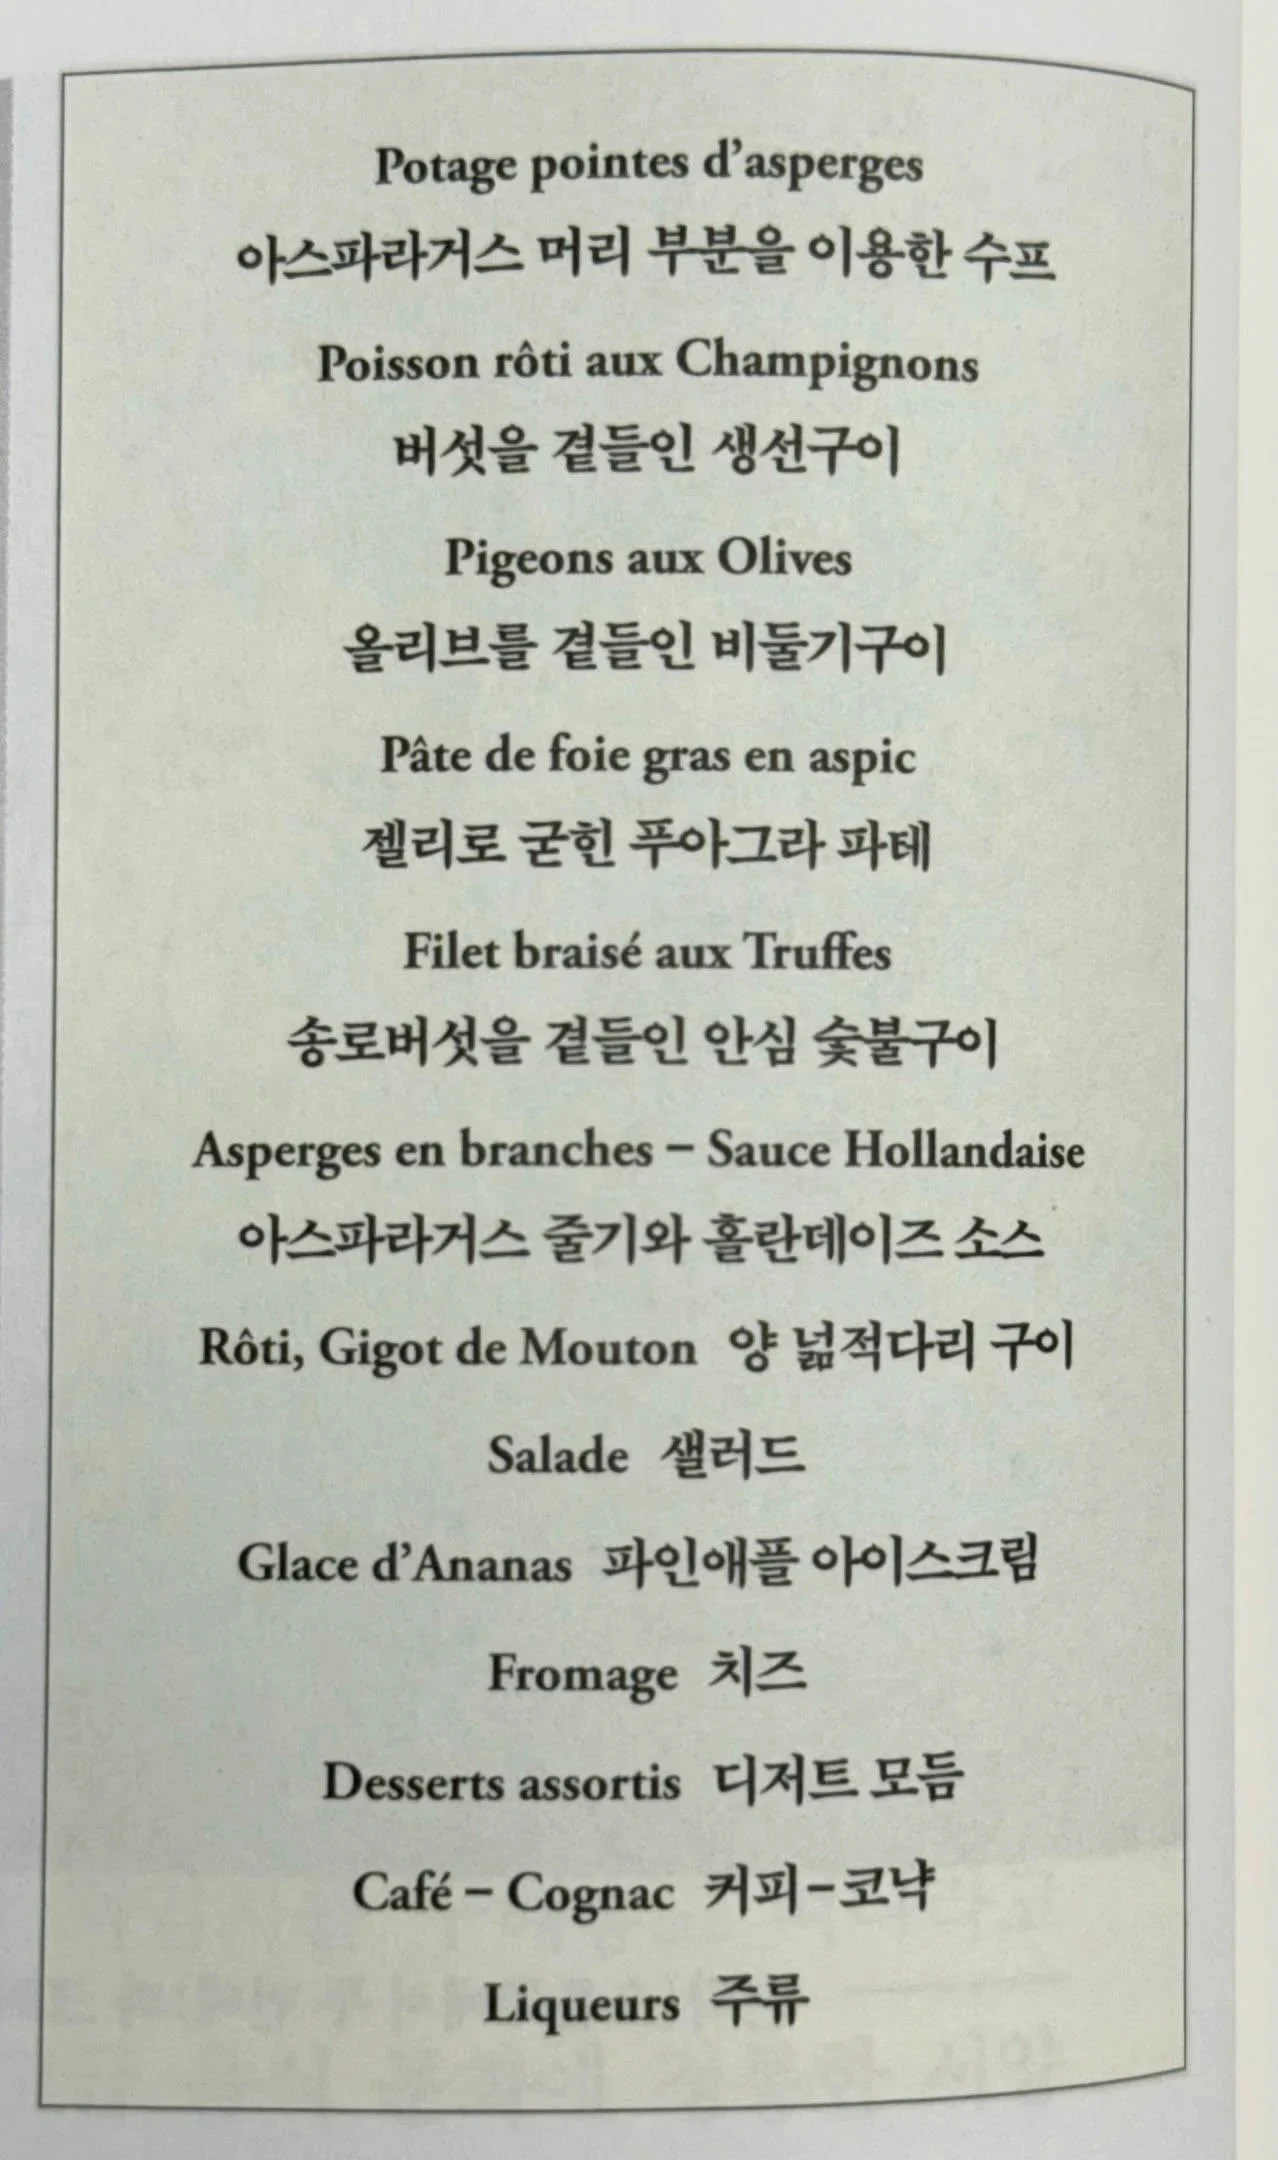 Potage pointes d’asperges
아스파라거스 머리 부분을 이용한 수프
Poisson rôti aux Champignons
버섯을 곁들인 생선구이
Pigeons aux Olives
올리브를 곁들인 비둘기구이
Pâte de foie gras en aspic
젤리로 굳힌 푸아그라 파테
Filet braisé aux Truffes
송로버섯을 곁들인 안심 숯불구이
Asperges en branches – Sauce Hollandaise
아스파라거스 줄기와 홀란데이즈 소스
Rôti, Gigot de Mouton 양 넓적다리 구이
Salade 샐러드
Glace d’Ananas 파인애플 아이스크림
Fromage 치즈
Desserts assortis 디저트 모듬
Café – Cognac 커피–코냑
Liqueurs 주류